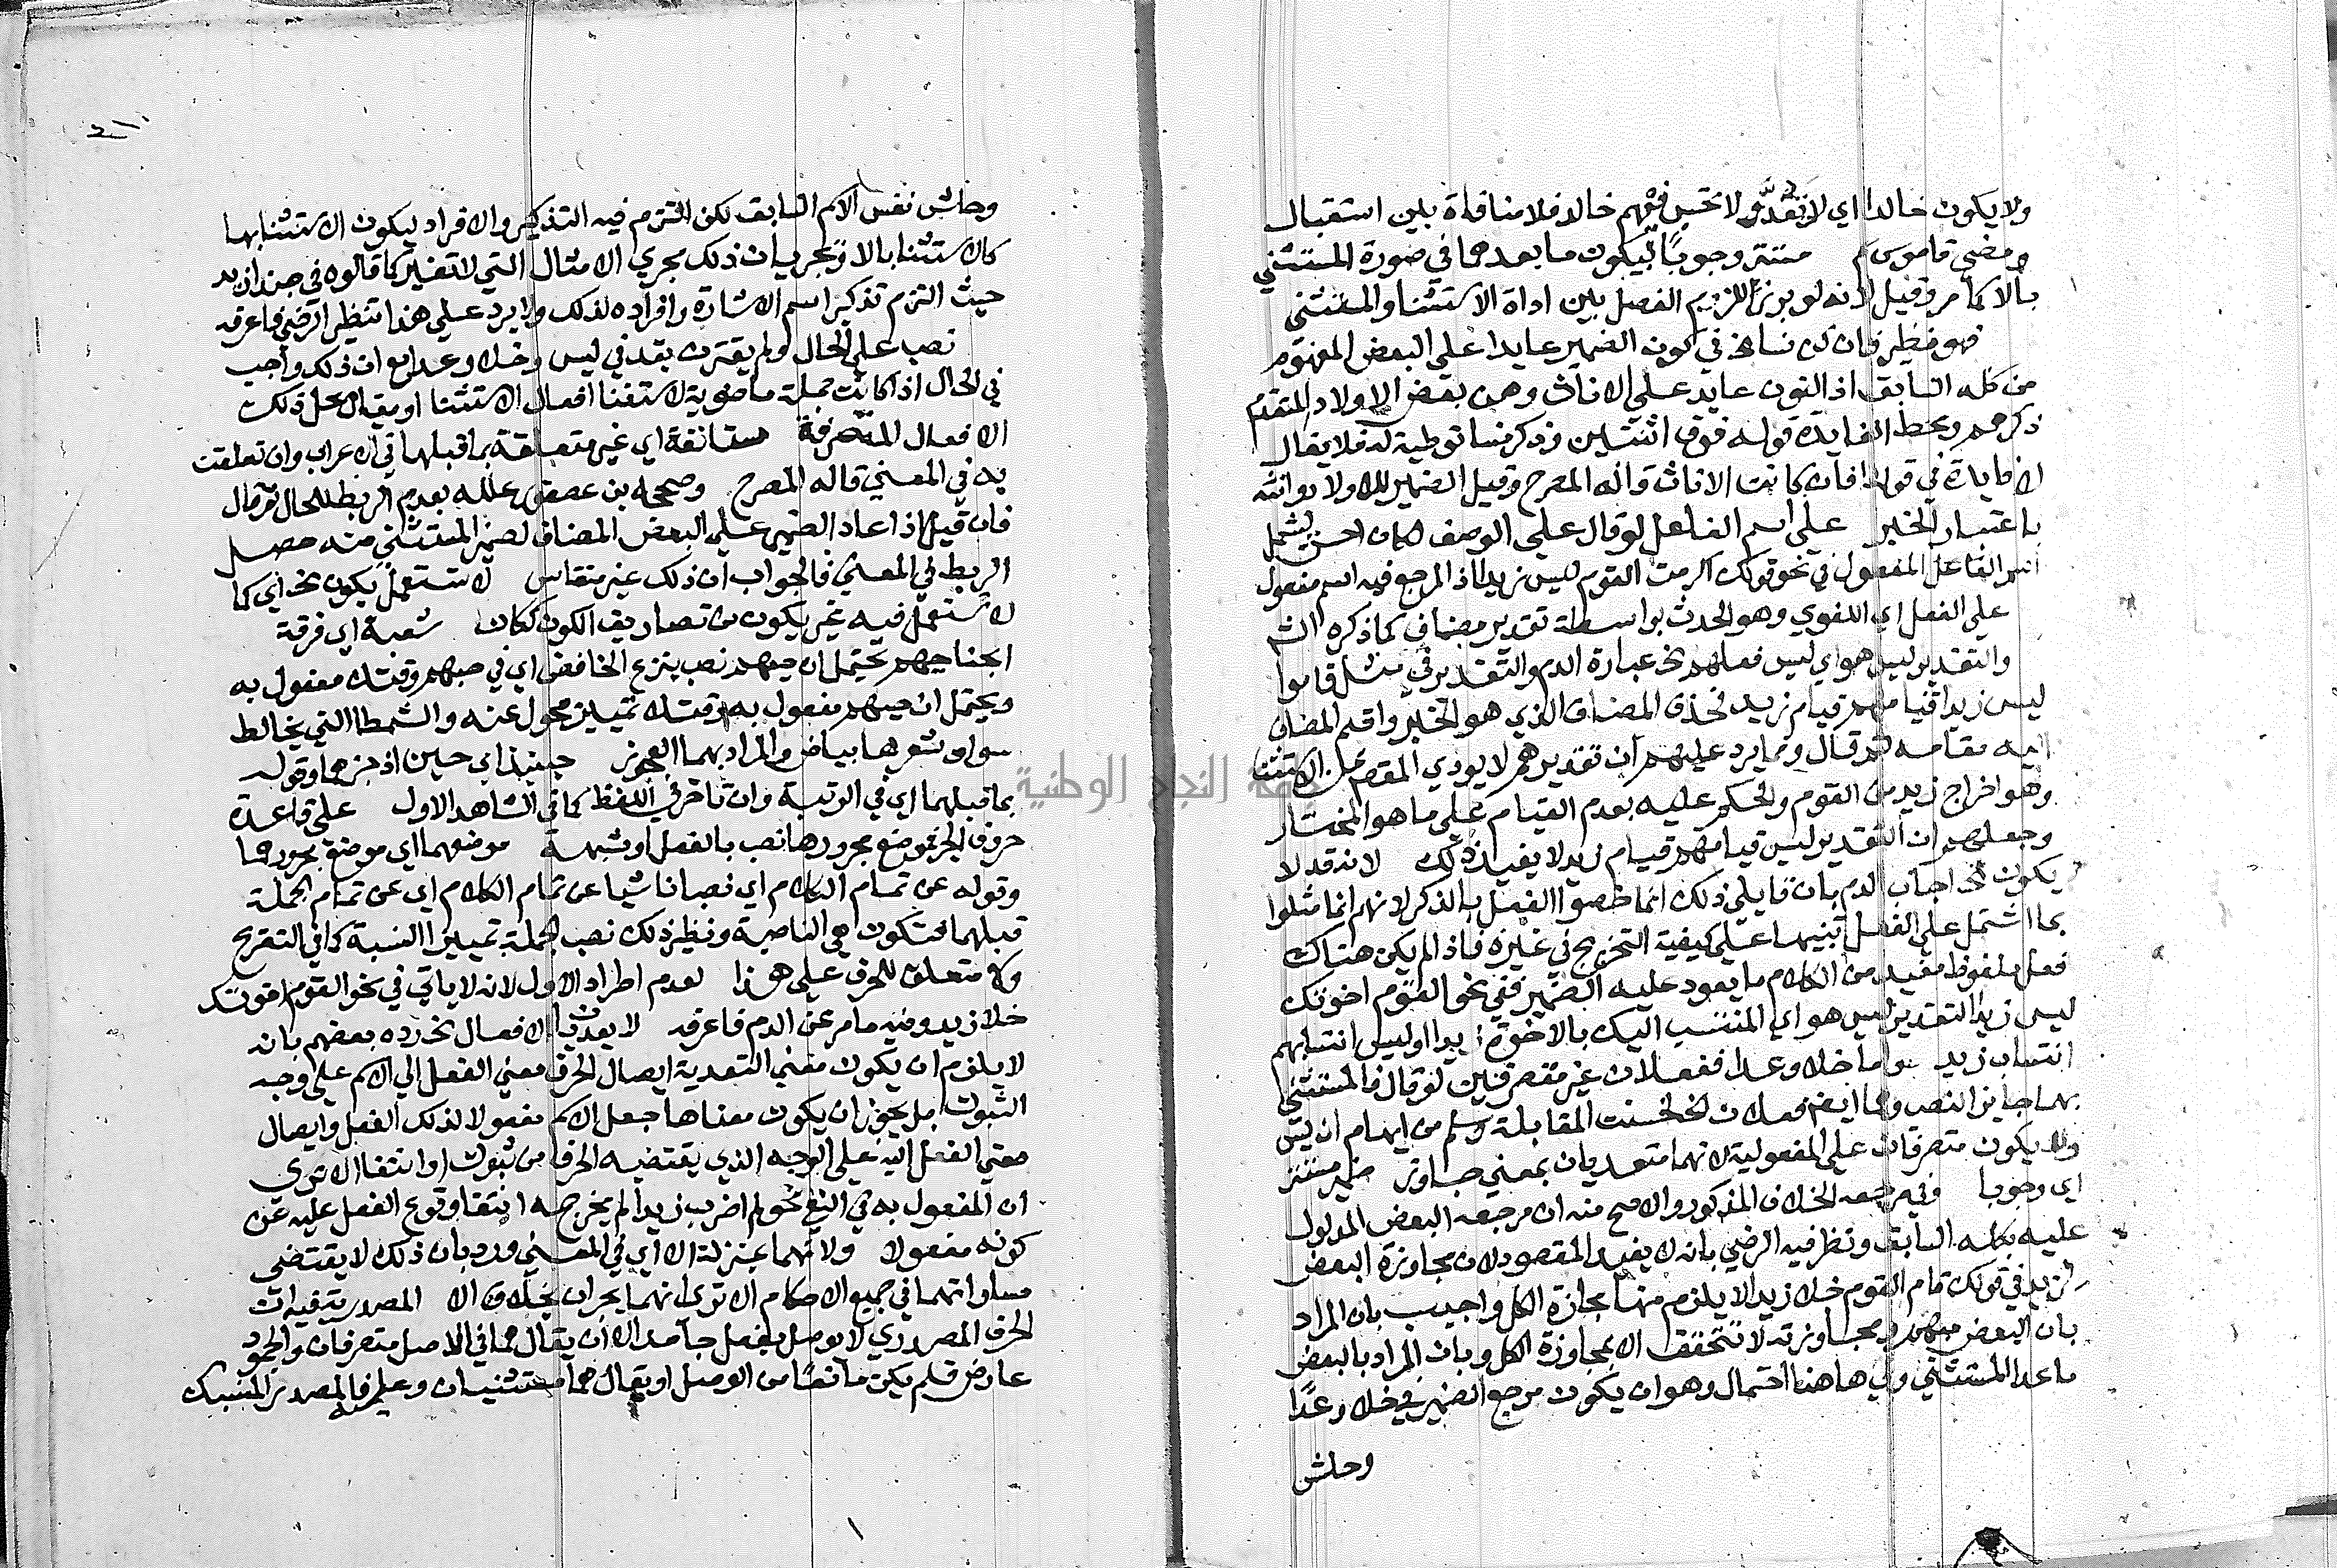 ولا يكون خالدا اي لا تعد ولا تحسب فيهم خالد فلا منافاة بين استقبال
ومضي قاموس م مستتر وجوبا ليكون ما بعدهما في صورة المستثني
بالا كما مر وقيل لانه لو برز للزم الفصل بين اداة الاستثنا والمستثني
فهو نظير فان كن نسا نخ في كون الضمير عايدا علي البعض المفهوم
من كله السابق اذ النون عايد علي الاناث وهن بعض الاولاد المتقدم
ذكرهم ومحط الفايدة قوله فوق اثنتين وذكر نسا توطية له فلا يقال
لا فايدة في قولنا فان كانت الاناث قاله المصرح وقيل الضمير للاولاد وانثه
باعتبار الخبر علي اسم الفاعل لو قال علي الوصف لكان احسن ليشمل
اسم الفاعل المفعول في نحو قولك اكرمت القوم ليس زيدا اذ المرجع فيه اسم مفعول
علي الفعل اي اللغوي وهو الحدث بواسطة تقدير مضاف كما ذكره الش
والتقدير ليس هو اي ليس فعلهم نخ عبارة الدم والتقدير في مثل قاموا
ليس زيدا قيامهم قيام زيد فحذف المضاف الذي هو الخبر واقيم المضاف
اليه مقامه ثم قال ومما يرد عليهم ان تقديرهم لا يودي المقصد من الاستثنا
وهو اخراج زيد من القوم والحكم عليه بعدم القيام علي ما هو المختار
وجعلهم ان التقدير ليس قيامهم قيام زيد لا يفيد ذلك لانه قد لا
يكون نخ اجاب الدم بان قايلي ذلك انما خصوا الفعل بالذكر لانهم انما مثلوا
بما اشتمل علي الفعل تنبيها علي كيفية التخريج في غيره فاذا لم يكن هناك
فعل ملفوظ مفيد من الكلام ما يعود عليه الضمير ففي نحو القوم اخوتك
ليس زيدا التقدير ليس هو اي المنتسب اليك بالاخوة زيدا او ليس انتسابهم
انتساب زيد واما خلا وعدا ففعلان غير متصرفين لو قال فالمستثني
بهما جايز النصب وهما ايضا فعلان نخ لحسنت المقابلة وسلم من ايهام ان ليس
ولا يكون متصرفان علي المفعولية لانهما متعديان بمعني جاوز ضمير مستتر
اي وجوبا وفي مرجعه الخلاف المذكور والاصح منه ان مرجعه البعض المدلول
عليه بكله السابق ونظر فيه الرضي بانه لا يفيد المقصود لان مجاوزة البعض
لزيد في قولك قام القوم خلا زيدا لا يلزم منها مجاوزة الكل واجيب بان المراد
بان البعض مبهم ومجاوزته لا تتحقق الا بمجاوزة الكل وبان المراد بالبعض
ما عدا المستثني وفي هاهنا احتمال وهو ان يكون مرجع الضمير في خلا وعدا
وحاش
وحاش نفس الاسم السابق لكن التزم فيه التذكير والافراد ليكون الاستثنا بها
كالاستثنا بالا ويجريان ذلك مجري الامثال التي لا تغير كما قالوه في حبذا زيد
حيث التزم تذكير اسم الاشارة وافراده لذلك ولا يرد علي هذا تنظير الرضي فاعرفه
نصب علي الحال ولم يقترن بقد في ليس وخلا وعدا مع ان ذلك واجب
في الحال اذا كانت جملة ماضوية لاستثنا افعال الاستثنا او يقال محل ذلك
الافعال المتصرفة مستانفة اي غير متعلقة بما قبلها في الاعراب وان تعلقت
به في المعني قاله المصرح وصححه ابن عصفور وعلله بعدم الربط للحال ثم قال
فان قيل اذا عاد الضمير علي البعض المضاف لضمير المستثني منه حصل
الربط في المعني فالجواب ان ذلك غير منقاس لا تستعمل يكون نخ اي كما
لا تستعمل فيه غير يكون من تصاريف الكون ككان شعبة اي فرقة
ابحنا حيهم يحتمل ان حيهم نصب بنزع الخافض اي في حيهم وقتلا مفعول به
ويحتمل ان حيهم مفعول به وقتلا تمييز محول عنه والشمطا التي يخالط
سواد شعرها بياض والمراد بهما العجوز حينيذ اي حين اذ جرهما وقوله
بما قبلهما اي في الرتبة وان تاخر في اللفظ كما في الشاهد الاول علي قاعدة
حروف الجر فموضع مجرورها نصب بالفعل او شبهه موضعهما اي موضع مجرورهما
وقوله عن تمام الكلام اي نصبا ناشيا عن تمام الكلام اي عن تمام الجملة
قبلهما فتكون هي الناصبة ونظير ذلك نصب الجملة تمييز النسبة كذا في التصريح
ولا متعلق للحرف علي هذا لعدم اطراد الاول لانه لا ياتي في نحو القوم اخوتك
خلا زيد وفيه ما مر عن الدم فاعرفه لا يعديان الافعال نخ رده بعضهم بانه
لا يلزم ان يكون معني التعدية ايصال الحرف معني الفعل الي الاسم علي وجه
الثبوت بل يجوز ان يكون معناها جعل الاسم مفعولا لذلك الفعل وايصال
معني الفعل اليه علي الوجه الذي يقتضيه الحرف من ثبوت او انتفا الا تري
ان المفعول به في النفي نحو لم اضرب زيدا لم يخرجه انتفا وقوع الفعل عليه عن
كونه مفعولا ولانهما بمنزلة الا اي في المعني ورد بان ذلك لا يقتضي
مساواتهما في جميع الاحكام الا تري انهما يجران بخلاف الا المصدرية فيه ان
الحرف المصدري لا يوصل بفعل جامد الا ان يقال هما في الاصل متصرفان والجمود
عارض فلم يكن مانعا من الوصل او يقال هما مستثنيان وعليه فالمصدر المنسبك